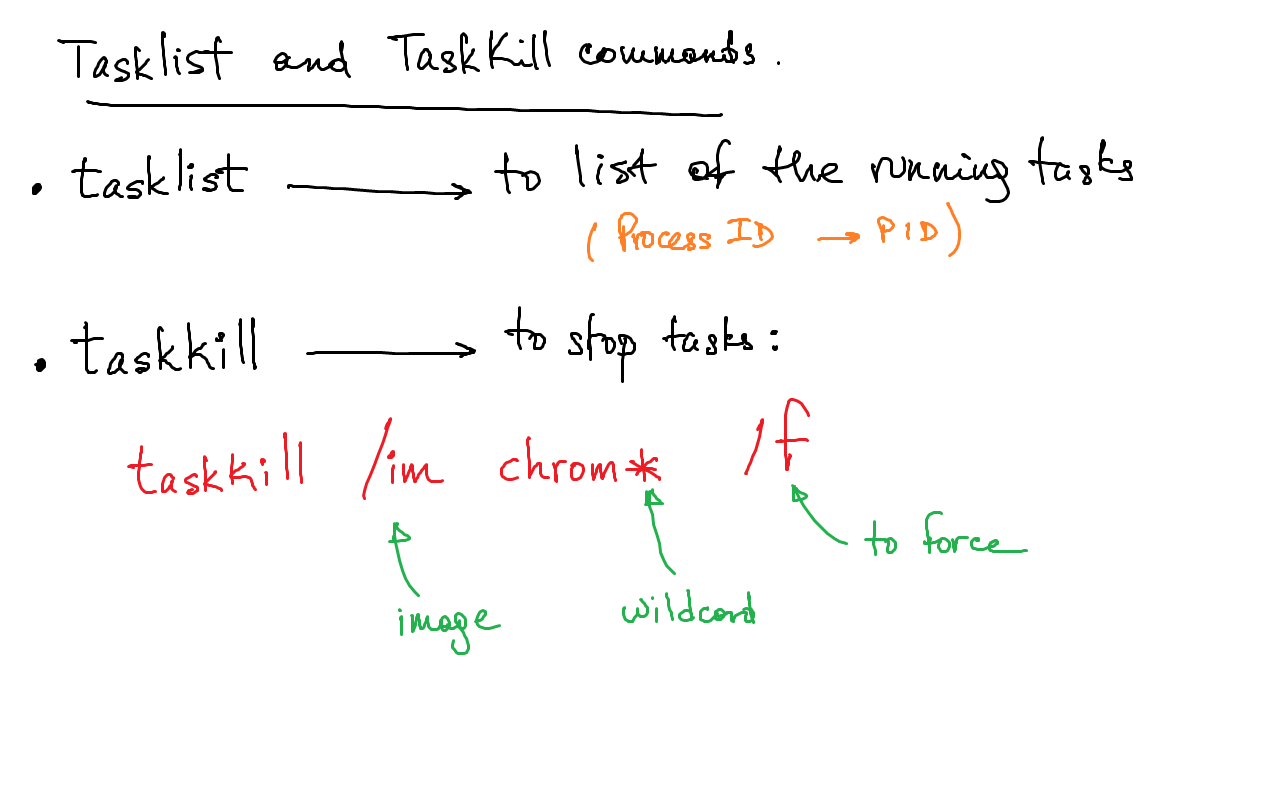 Tasklist and TaskKill commands.
• tasklist → to list of the running tasks
(Process ID → PID)
• taskkill → to stop tasks:
taskkill /im chrom* /f
to force
image wildcard